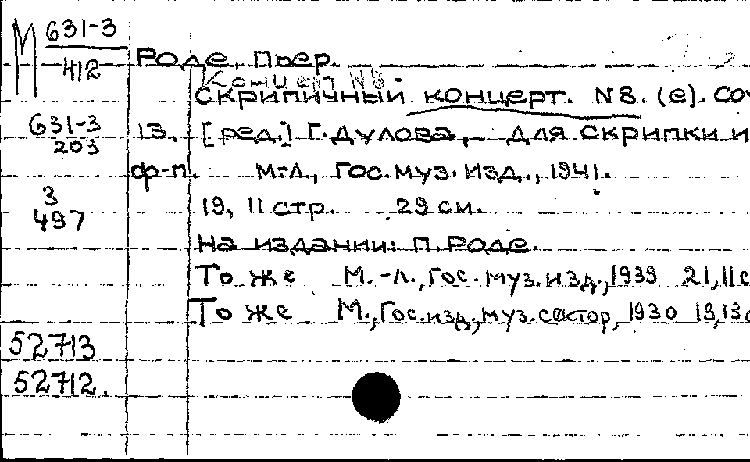 М 631-3
412
Роде, Пьер.
Концерт N8.
Скрипичный концерт. N8. (e). Со
631-3
203
13. [ред.] Г. Дулова, - для скрипки и
ф-п. М.-Л., Гос. муз. изд., 1941.
3
497
19, 11 стр. 29 см.
На издании: П. Роде.
То же М.-Л., Гос. муз. изд., 1939 21, 11 с
То же М., Гос. изд., муз. сектор, 1930 19, 13 с
52713
52712.